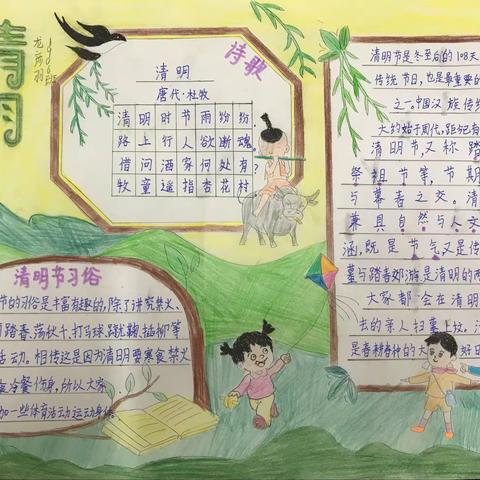 清明
诗歌
清明
唐代·杜牧
清明时节雨纷纷
路上行人欲断魂。
借问酒家何处有?
牧童遥指杏花村
清明节习俗
节的习俗是丰富有趣的,除了讲究禁火、
踏青、荡秋千、打马球、蹴鞠、插柳等
活动。相传这是因为清明要寒食禁火
冷餐伤身,所以大家
加一些体育活动运动身体。
清明节是冬至后的108天
传统节日,也是最重要的
之一。中国汉族传统
大约始于周代,距今
清明节,又称踏
祭祖节等,节期
与暮春之交。清
兼具自然与人文
涵,既是节气又是传
墓与踏青郊游是清明的两
大家都会在清明
去的亲人扫墓上坟。
是春耕春种的大好日